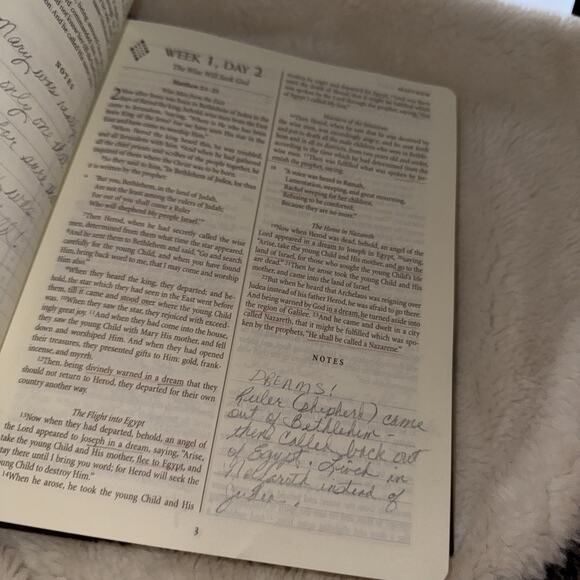 NOTES
Mary was
only one th
WEEK 1, DAY 2
The Wise Will Seek God
Matthew 2:1–23
Wise Men from the East
2 Now after Jesus was born in Bethlehem of Judea in the
days of Herod the king, behold, wise men from the East
came to Jerusalem, saying, "Where is He who has been
born King of the Jews? For we have seen His star in the
East and have come to worship Him."
When Herod the king heard this, he was troubled,
and all Jerusalem with him. And when he had gathered
all the chief priests and scribes of the people together, he
inquired of them where the Christ was to be born.
So they said to him, "In Bethlehem of Judea, for thus
it is written by the prophet:
"But you, Bethlehem, in the land of Judah,
Are not the least among the rulers of Judah;
For out of you shall come a Ruler
Who will shepherd My people Israel.'"
Then Herod, when he had secretly called the wise
men, determined from them what time the star appeared.
And he sent them to Bethlehem and said, "Go and search
carefully for the young Child, and when you have found
Him, bring back word to me, that I may come and worship
Him also."
⁹When they heard the king, they departed; and be-
hold, the star which they had seen in the East went before
them, till it came and stood over where the young Child
was. ¹⁰When they saw the star, they rejoiced with exceed-
ingly great joy. ¹¹And when they had come into the house,
they saw the young Child with Mary His mother, and fell
down and worshiped Him. And when they had opened
their treasures, they presented gifts to Him: gold, frank-
incense, and myrrh.
¹²Then, being divinely warned in a dream that they
should not return to Herod, they departed for their own
country another way.
The Flight into Egypt
¹³Now when they had departed, behold, an angel of
the Lord appeared to Joseph in a dream, saying, "Arise,
take the young Child and His mother, flee to Egypt, and
stay there until I bring you word; for Herod will seek the
young Child to destroy Him."
¹⁴When he arose, he took the young Child and His
MATTHEW
mother by night and departed for Egypt,
Massacre of the Innocents
Then Herod, when he saw that he was deceived by
the wise men, was exceedingly angry; and he sent forth
and put to death all the male children who were in Bethle-
hem and in all its districts, from two years old and under,
according to the time which he had determined from the
wise men. Then was fulfilled what was spoken by Jer-
emiah the prophet, saying:
"A voice was heard in Ramah,
Lamentation, weeping, and great mourning,
Rachel weeping for her children,
Refusing to be comforted,
Because they are no more."
The Home in Nazareth
¹⁹Now when Herod was dead, behold, an angel of the
Lord appeared in a dream to Joseph in Egypt, ²⁰saying,
"Arise, take the young Child and His mother, and go to the
land of Israel, for those who sought the young Child's life
are dead." ²¹Then he arose, took the young Child and His
mother, and came into the land of Israel.
²²But when he heard that Archelaus was reigning over
Judea instead of his father Herod, he was afraid to go there.
And being warned by God in a dream, he turned aside into
the region of Galilee. ²³And he came and dwelt in a city
called Nazareth, that it might be fulfilled which was spo-
ken by the prophets, "He shall be called a Nazarene."
NOTES
DREAMS!
Ruler (shepherd) came
out of Bethlehem -
then called back out
of Egypt; Lived in
Nazareth instead of
Judea.
3